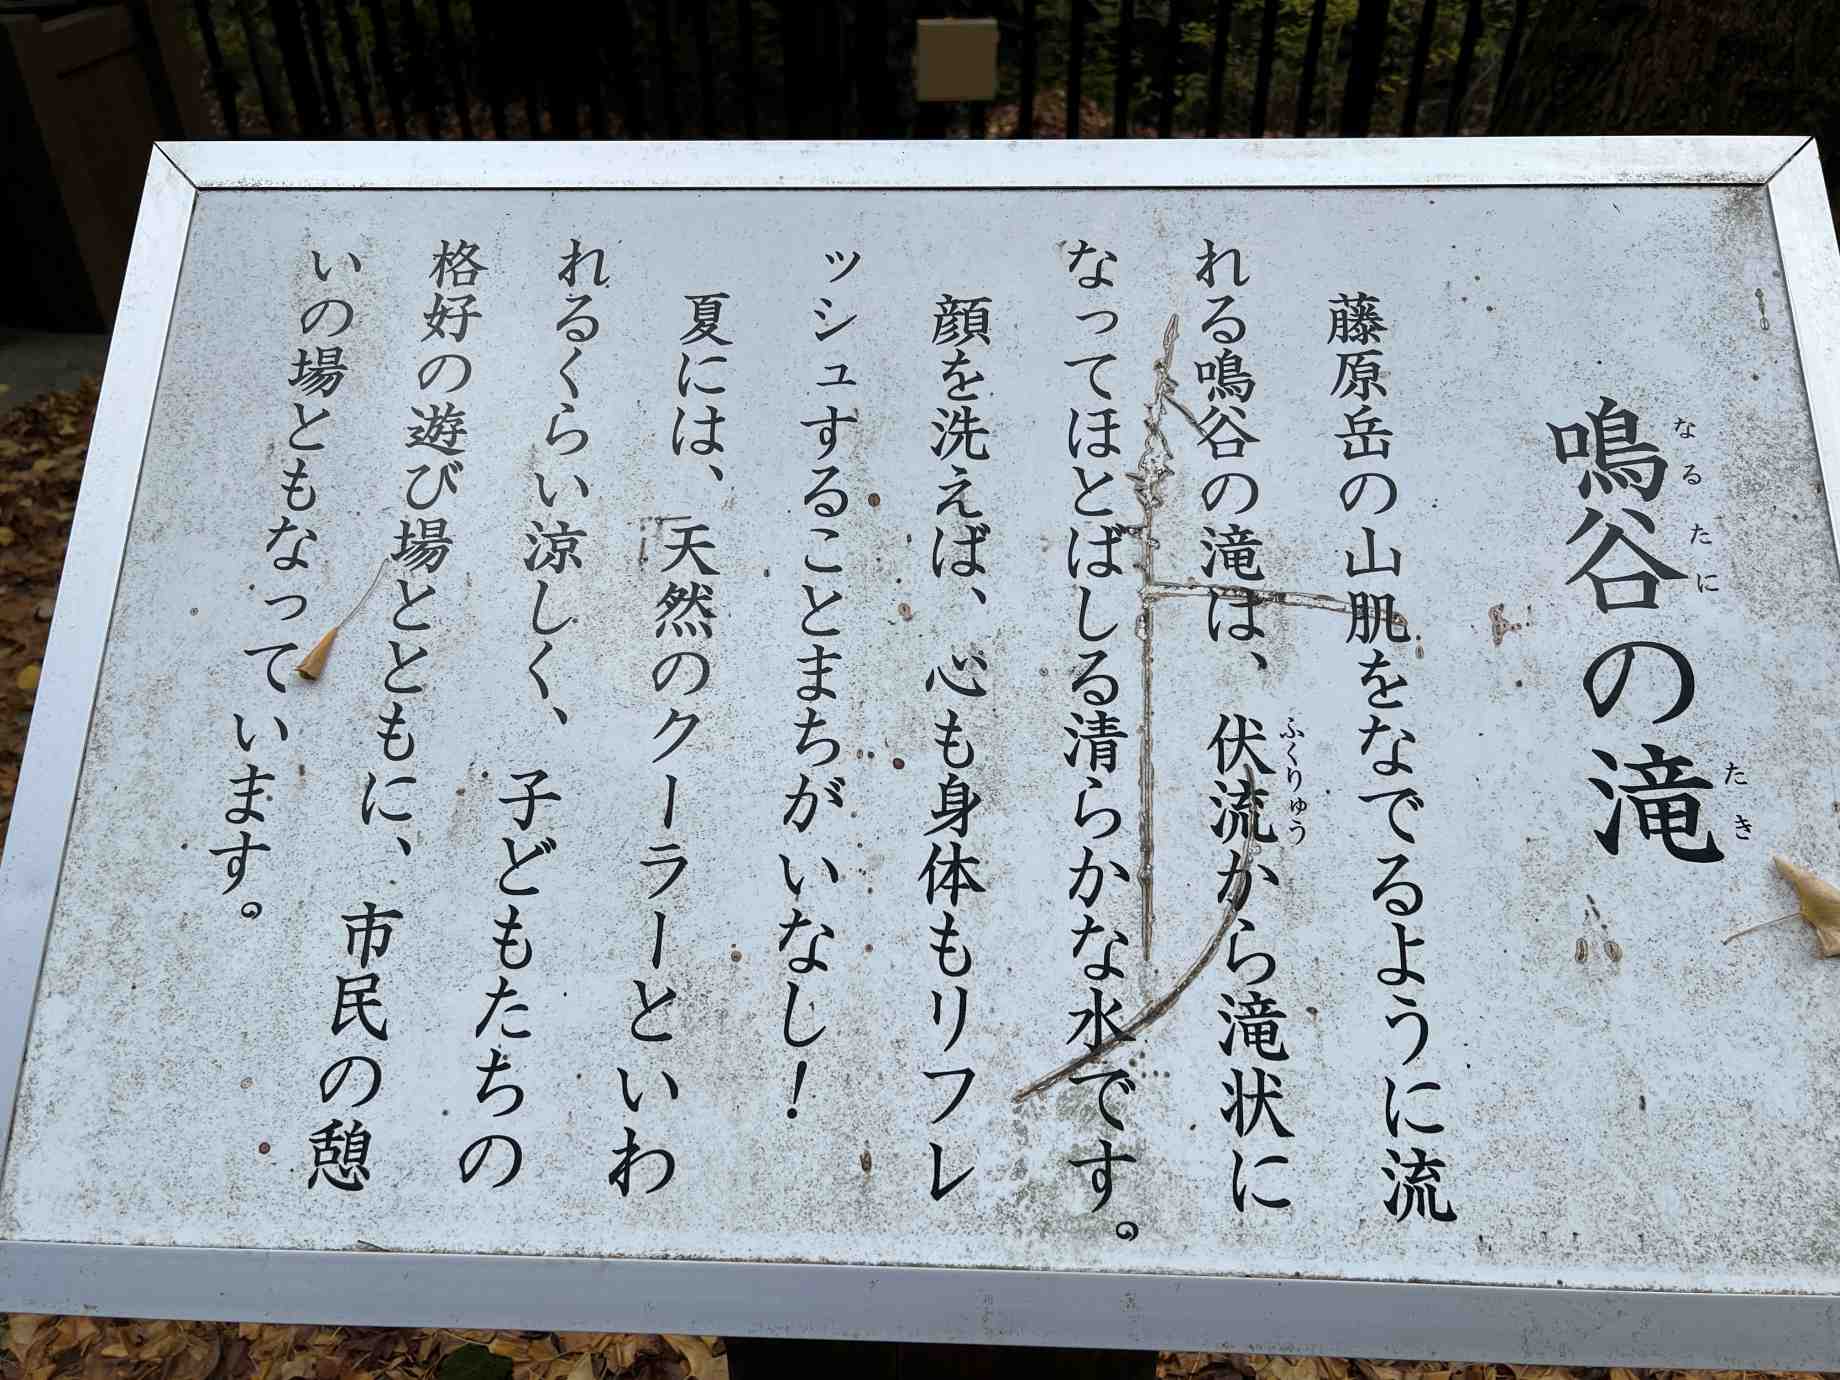 鳴谷の滝
なるたに たき
藤原岳の山肌をなでるように流
れる鳴谷の滝は、伏流から滝状に
ふくりゅう
なってほとばしる清らかな水です。
顔を洗えば、心も身体もリフレ
ッシュすることまちがいなし！
夏には、天然のクーラーといわ
れるくらい涼しく、子どもたちの
格好の遊び場とともに、市民の憩
いの場ともなっています。